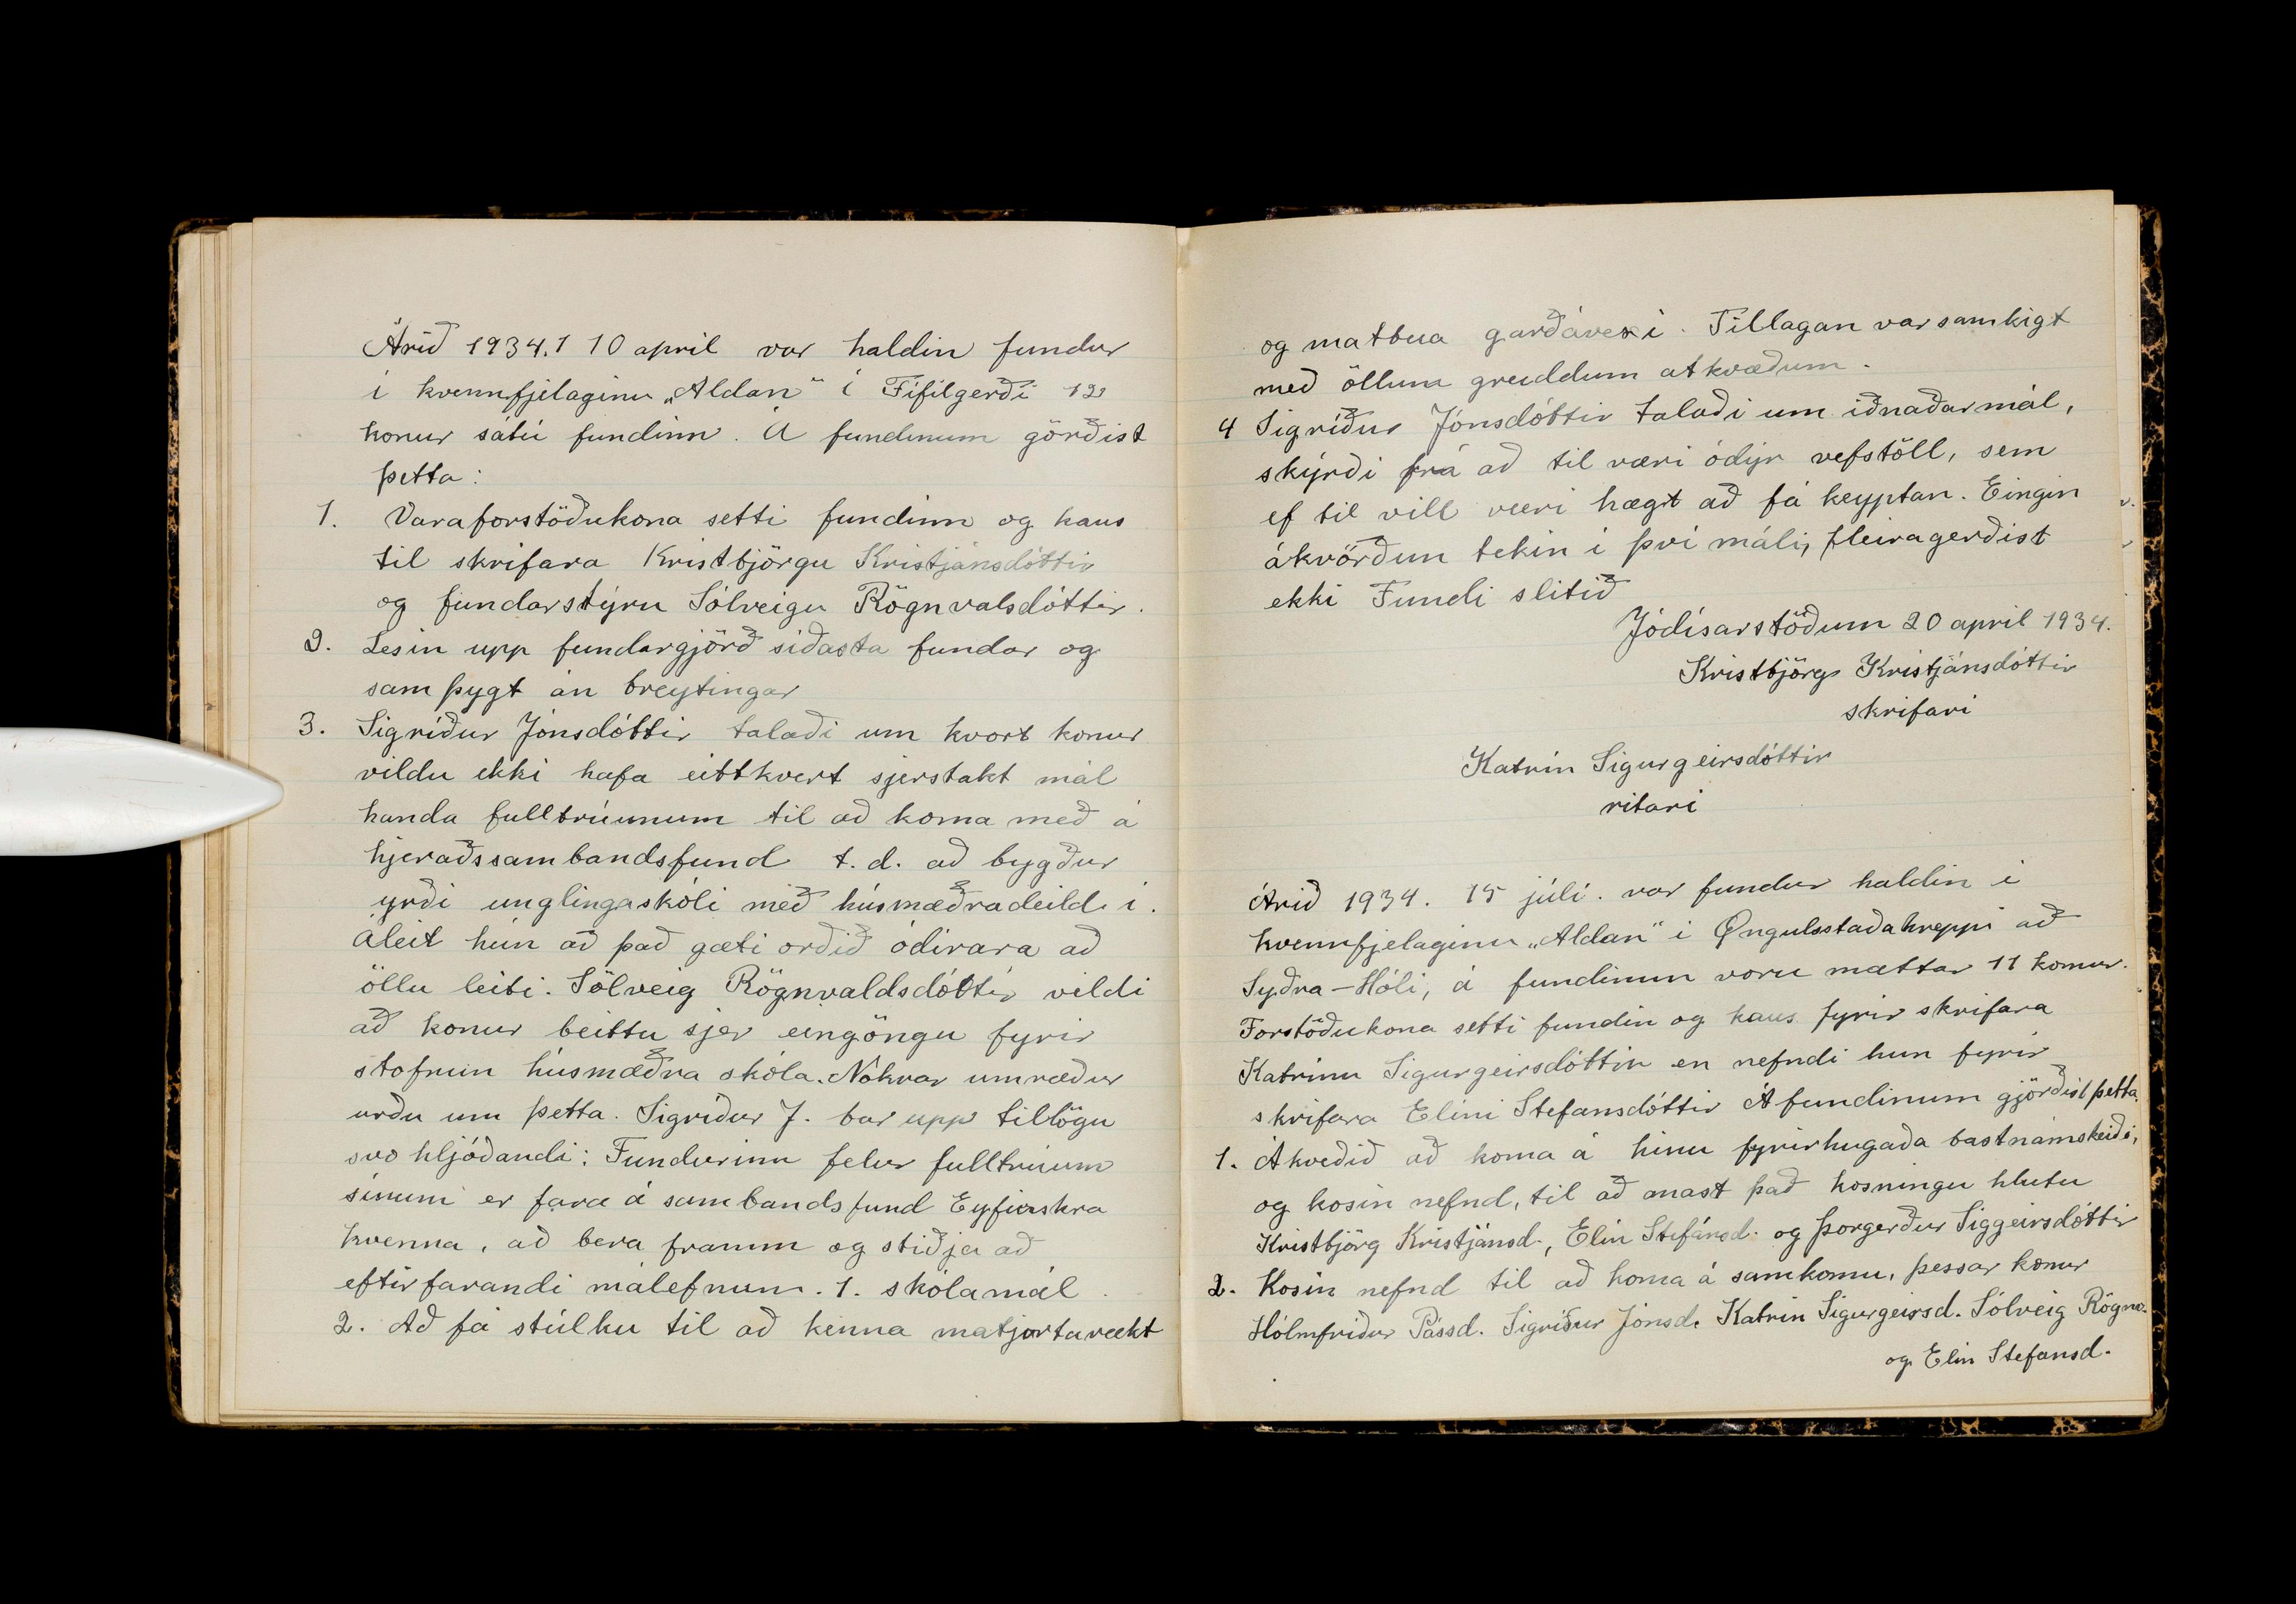 Árið 1934.1 10 apríl var haldin fundur
í kvennfjelaginu „Aldan" í Fífilgerði 12
konur sátu fundinn. Á fundinum görðist
þetta:
1. Varaforstöðukona setti fundinn og kaus
til skrifara Kristbjörgu Kristjánsdóttir
og fundarstýru Sólveigu Rögnvalsdóttir.
2. Lesin upp fundargjörð síðasta fundar og
samþygt án breytingar
3. Sigríður Jónsdóttir talaði um kvort konur
vildu ekki hafa eittkvert sjerstakt mál
handa fulltrúunum til að koma með á
hjeraðssambandsfund t.d. að bygður
yrði unglingaskóli með húsmæðradeild í.
Áleit hún að það gæti orðið ódírara að
öllu leiti. Sólveig Rögnvaldsdóttir vildi
að konur beittu sjer eingöngu fyrir
stofnun húsmæðra skóla. Nokrar umræður
urðu um þetta. Sigríður J. bar upp tillögu
svo hljóðandi: Fundurinn felur fulltrúum
sínum er fara á sambandsfund Eyfirskra
kvenna, að bera framm og stiðja að
eftirfarandi málefnum. 1. skólamál.
2. Að fá stúlku til að kenna matjurtarækt
og matbua garðávexi. Tillagan var samkigt
með öllum greiddum atkvæðum.
4 Sigríður Jónsdóttir talaði um iðnaðarmál,
skýrði frá að til væri ódýr vefstóll, sem
ef til vill væri hægt að fá keyptan. Eingin
ákvörðun tekin í því máli, fleira gerðist
ekki Fundi slitið
Jódísarstöðum 20 apríl 1934.
Kristbjörg Kristjánsdóttir
skrifari
Katrín Sigurgeirsdóttir
ritari
Árið 1934. 15 júlí. var fundur haldin í
kvennfjelaginu „Aldan" í Öngulsstaðahreppi að
Syðra-Hóli, á fundinum voru mættar 11 konur.
Forstöðukona setti fundin og kaus fyrir skrifara
Katrínu Sigurgeirsdóttir en nefndi hun fyrir
skrifara Elíni Stefansdóttir Á fundinum gjörðist þetta.
1. Ákveðið að koma á hinu fyrirhugaða bastnámskeiði,
og kosin nefnd, til að anast það kosningu hlutu
Kristbjörg Kristjánsd., Elín Stefánsd. og Þorgerður Siggeirsdóttir
2. Kosin nefnd til að koma á samkomu, þessar konur
Hólmfríður Pássd. Sigríður Jónsd. Katrín Sigurgeirsd. Sólveig Rögnv.
og Elín Stefansd.